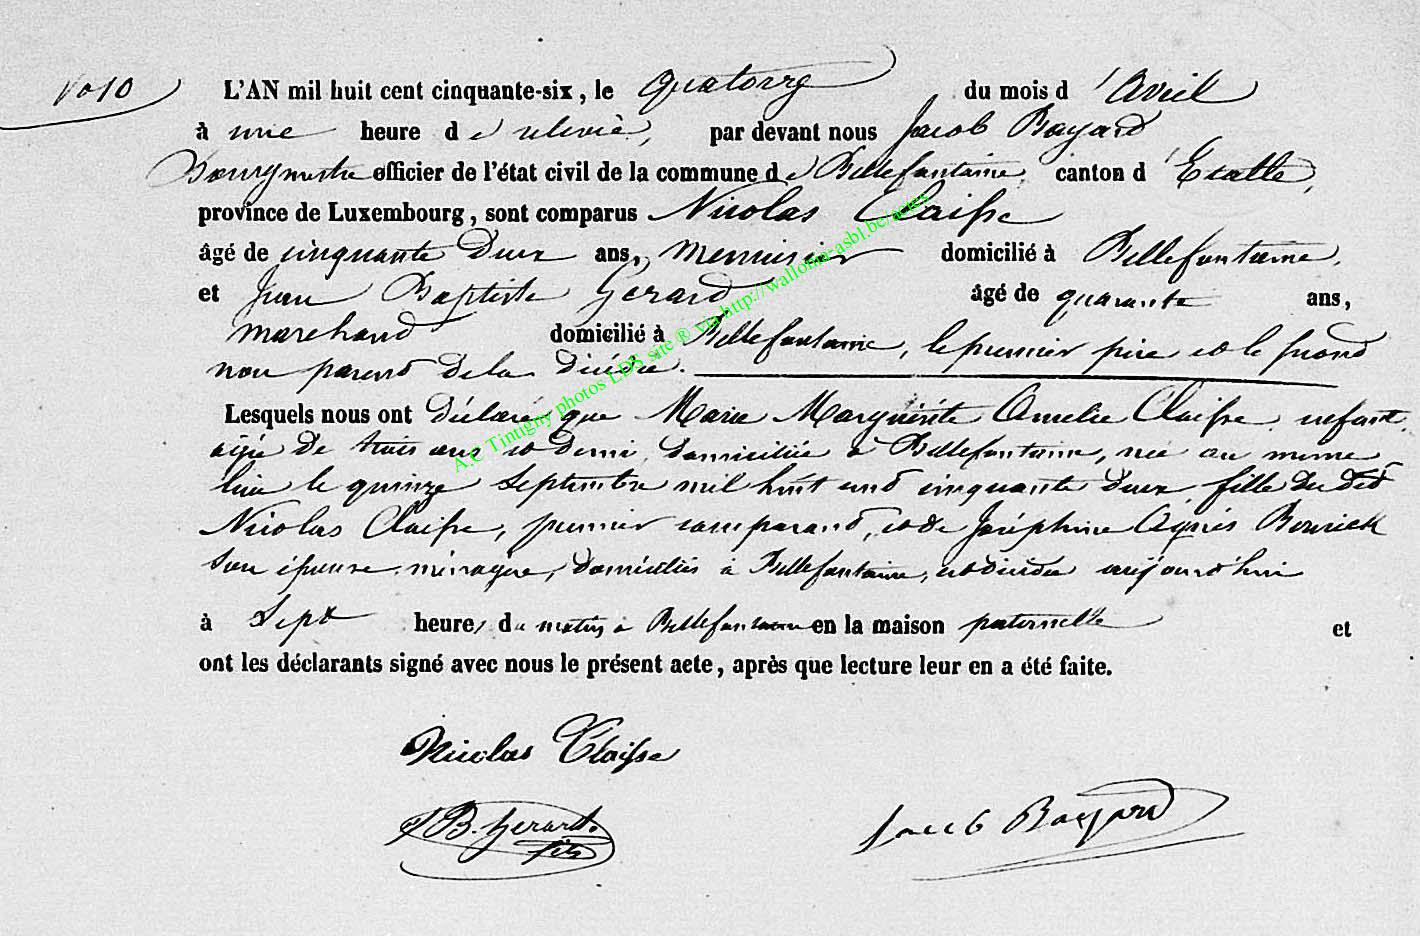 No 10
L'AN mil huit cent cinquante-six, le quatorze du mois d'Avril
à une heure de relevée, par devant nous Jacob Bayard
Bourgmestre officier de l'état civil de la commune de Bellefontaine, canton d'Etalle,
province de Luxembourg, sont comparus Nicolas Claisse
âgé de cinquante deux ans, menuisier domicilié à Bellefontaine,
et Jean Baptiste Gérard âgé de quarante ans,
marchand domicilié à Bellefontaine, le premier père et le second
non parent de la décédée.
Lesquels nous ont déclaré que Marie Marguerite Amelie Claisse, enfant,
agée de trois ans et demi, domiciliée à Bellefontaine, née au meme
lieu le quinze Septembre mil huit cent cinquante deux, fille du dit
Nicolas Claisse, premier comparant, et de Joséphine Agnès
son épouse, ménagère, domiciliés à Bellefontaine, est décédée aujourd'hui
à Sept heures du matin à Bellefontaine en la maison paternelle et
ont les déclarants signé avec nous le présent acte, après que lecture leur en a été faite.
Nicolas Claisse
J B. Gerard
fils
Jacob Bayard
A.C Tintigny photos LDS site ® via http://wallonia-asbl.be/actes